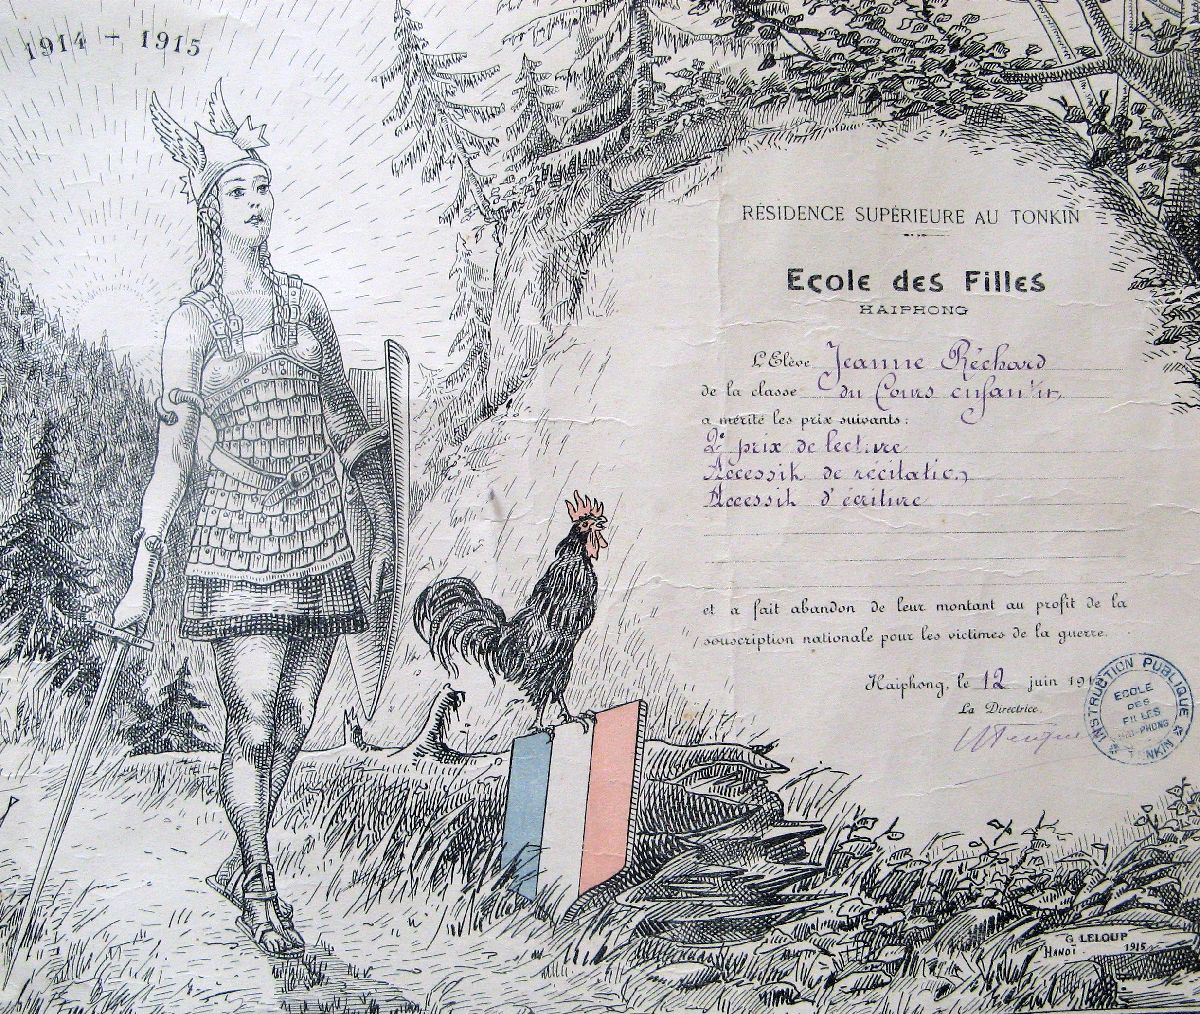 1914 + 1915
RÉSIDENCE SUPÉRIEURE AU TONKIN
Ecole des Filles
HAIPHONG
L'Elève Jeanne Réchard
de la classe du Cours enfantin
a mérité les prix suivants:
2e prix de lecture
Accessit de récitation
Accessit d'écriture
et a fait abandon de leur montant au profit de la
souscription nationale pour les victimes de la guerre.
Haiphong, le 12 juin 191
La Directrice,
INSTRUCTION PUBLIQUE
ECOLE
DES
FILLES
HAI-PHONG
TONKIN
G. LELOUP
HANOÏ 1915